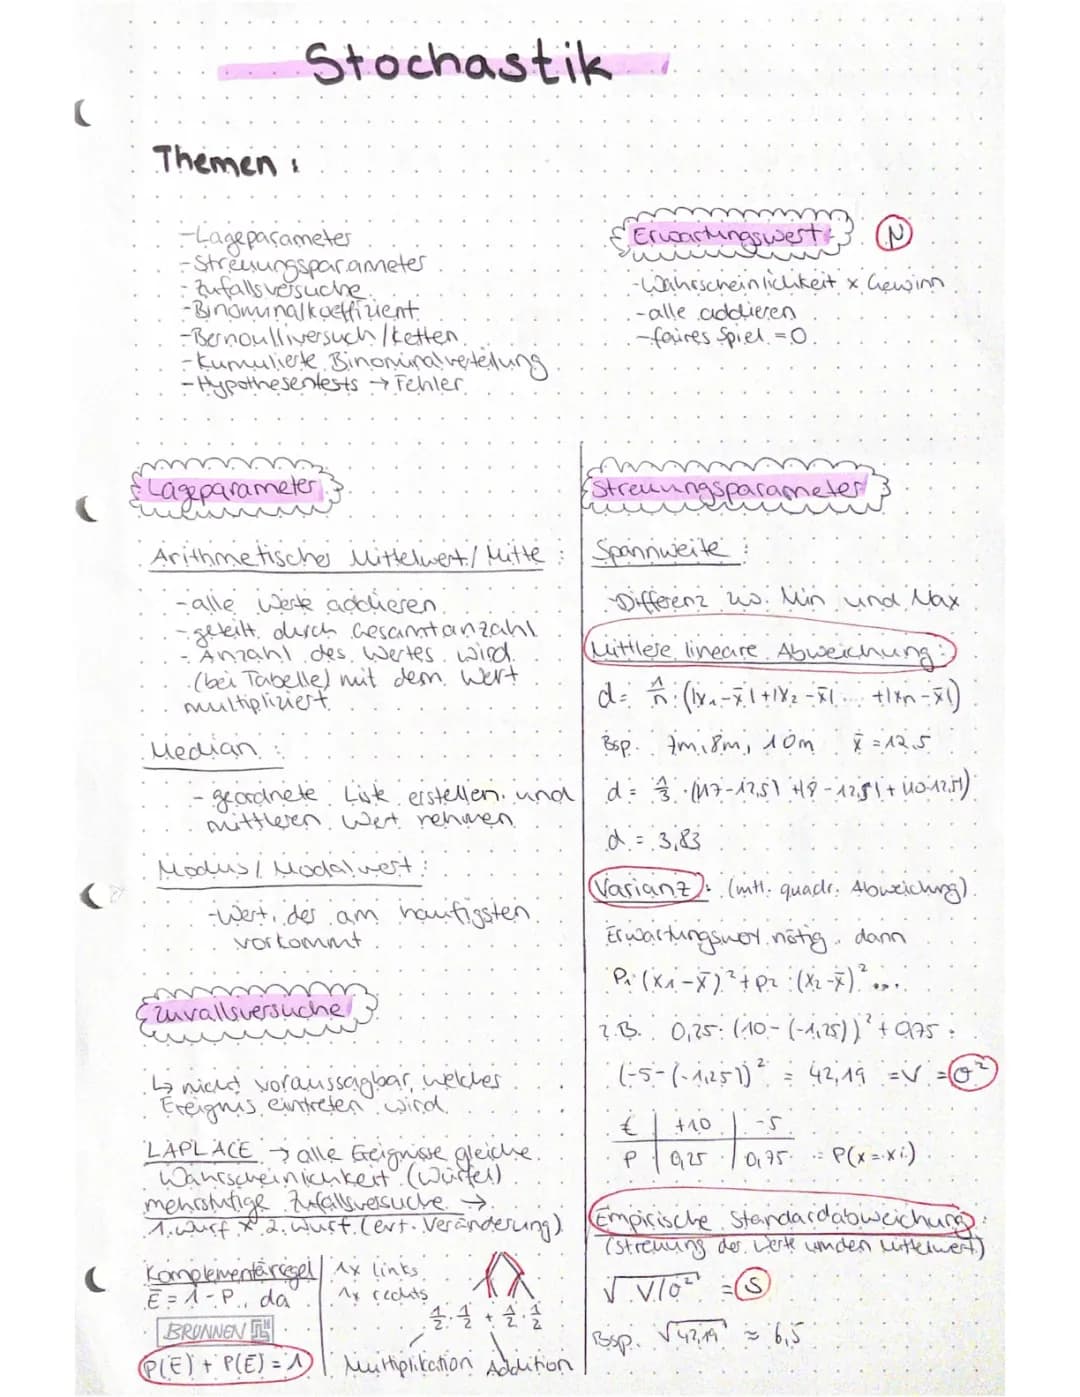 Stochastik
Themen :
-Lageparameter
-Streuungsparameter
-Zufallsversuche
-Binominalkoeffizient
-Bernoulliversuch/Ketten
-Kumulierte Binominalverteilung
-Hypothesentests → Fehler
Erwartungswert N
-Wahrscheinlichkeit x Gewinn
-alle addieren
-faires Spiel = 0
Lageparameter
Arithmetisches Mittelwert/Mitte :
-alle Werte addieren
-geteilt durch Gesamtanzahl
- Anzahl des Wertes wird
(bei Tabelle) mit dem Wert
multipliziert
Median :
- geordnete Liste erstellen und
mittleren Wert nehmen
Modus/Modalwert :
-Wert, der am häufigsten
vorkommt
Zuvallsversuche
↳ nicht voraussagbar, welches
Ereignis eintreten wird
LAPLACE → alle Ereignisse gleiche
Wahrscheinlichkeit (Würfel)
mehrstufige Zufallsversuche →
1. Wurf x 2. Wurf (evt. Veränderung)
Komplementärregel
Ē = 1 - P , da
BRUNNEN
P(E) + P(Ē) = 1
1x links
1x rechts
1/2 · 1/2 + 1/2 · 1/2
Multiplikation Addition
Streuungsparameter
Spannweite :
-Differenz zw. Min und Max
Mittlere lineare Abweichung :
d = 1/n · (|x₁-x̄|+|x₂-x̄|... +|xn-x̄|)
Bsp. 7m, 8m, 10m x̄ = 12,5
d = 1/3 · (|17-12,5|+|8-12,5|+|10-12,5|)
d = 3,83
Varianz : (mitl. quadr. Abweichung)
Erwartungswert nötig, dann
P₁·(x₁-x̄)²+p₂·(x₂-x̄)²...
z.B. 0,25·(10-(-1,25))²+0,75·
(-5-(-1,25))² = 42,19 = V = σ²
€ | +10 | -5
P | 0,25 | 0,75 = P(x=xi)
Empirische Standardabweichung :
(Streuung der Werte um den Mittelwert)
√V/σ² = S
Bsp. √42,19 ≈ 6,5